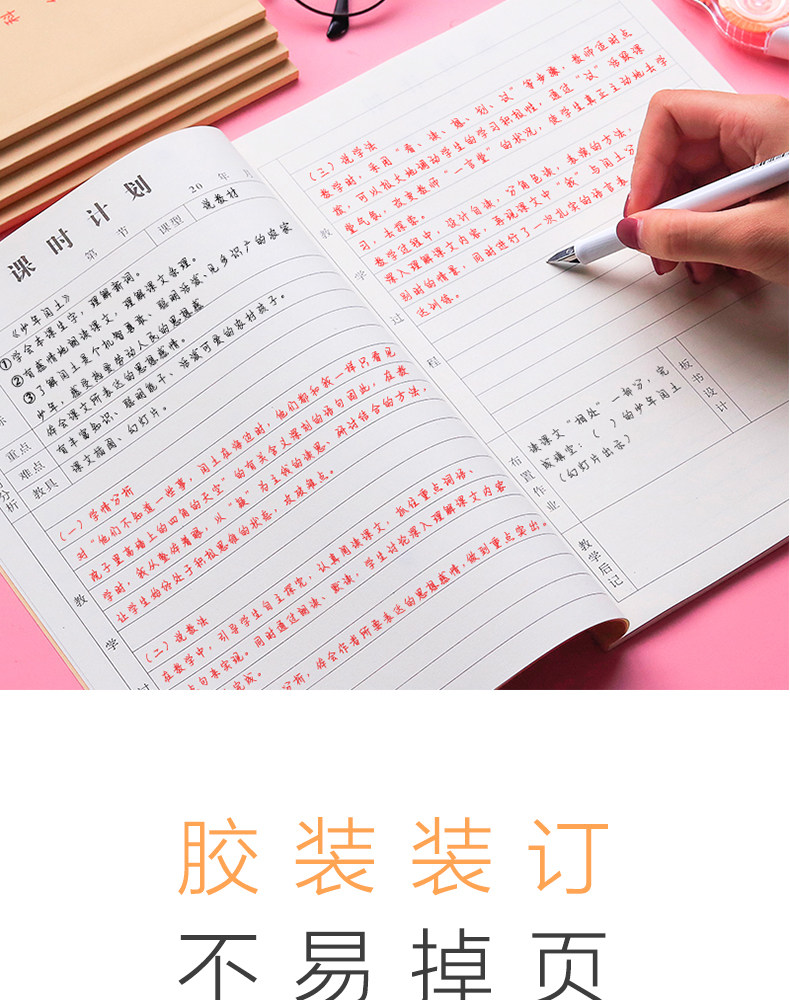 课时计划
20 年 月
第 节
课型
说教材
《少年闰土》
①学会本课生字,理解新词。
②有感情地朗读课文,理解课文条理。
③了解闰土是个机智勇敢、聪明活泼、见多识广的农家
少年,感受热爱劳动人民的思想感
体会课文所表达的思想感情。
有丰富知识、聪明能干、活泼可爱的农村孩子。
课文插图、幻灯片。
重点
难点
教具
分析
教
学
(一)学情分析
对“他们不知道一些事,闰土在海边时,他们都和我一样只看见
院子里高墙上的四角的天空”的有关含义深刻的语句因此,在教
学时,我从整体着眼,从“疑”为主线的读思、研讨结合的方法,
让学生始终处于积极思维的状态,攻破难点。
(二)说教法
在教学中,引导学生自主探究,认真阅读课文,抓住重点词语、
点句来实现。同时通过朗读、默读,学生讨论深入理解课文内容
完成。
分析,体会作者所要表达的思想感情,做到重点突出。
(三)说学法
教学时,采用“看、读、思、划、试”等步骤,教师适时点
拨,可以极大地调动学生的学习和积极性,通过“试”活跃课
堂气氛,改变教师“一言堂”的状况,使学生真正主动地去学
习,去探索。
教学过程中,设计自读,分角色读,表演的方法,
深入理解课文内容,再现课文中“我”与闰土分
别时的情景,同时进行了一次扎实的语言表
达训练。
教
学
过
程
板书设计
布置作业
读课文“相处”一部分,完
成填空:( )的少年闰土
(幻灯片出示)
教学后记
胶装装订
不易掉页